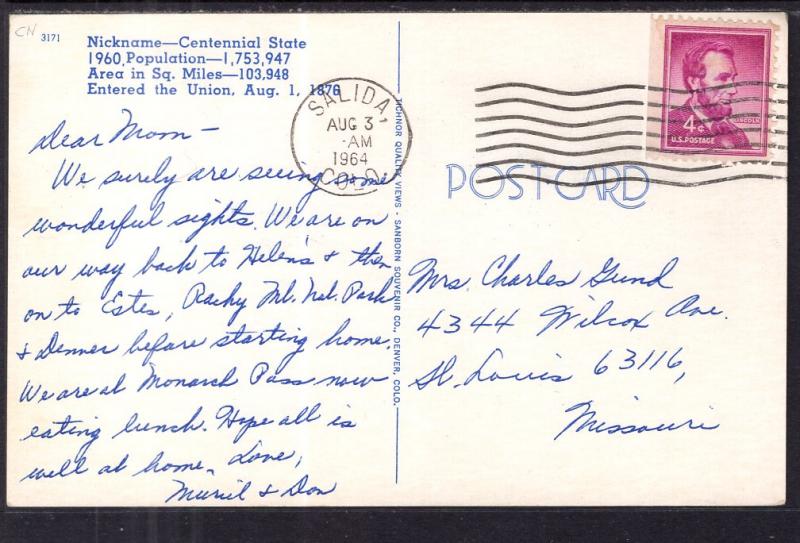 CN
3171
Nickname—Centennial State
1960 Population—1,753,947
Area in Sq. Miles—103,948
Entered the Union, Aug. 1, 1876
SALIDA,
AUG 3
-AM
1964
COLO.
4¢
LINCOLN
U.S. POSTAGE
POST CARD
TICHNOR QUALITY VIEWS - SANBORN SOUVENIR CO., DENVER, COLO.
Dear Mom —
We surely are seeing some
wonderful sights. We are on
our way back to Helen's & then
on to Estes, Rocky Mt. Nat. Park
& Denver before starting home.
We are at Monarch Pass now
eating lunch. Hope all is
well at home. Love,
Muriel & Don
Mrs. Charles Gund
4344 Wilcox Ave.
St. Louis 63116,
Missouri